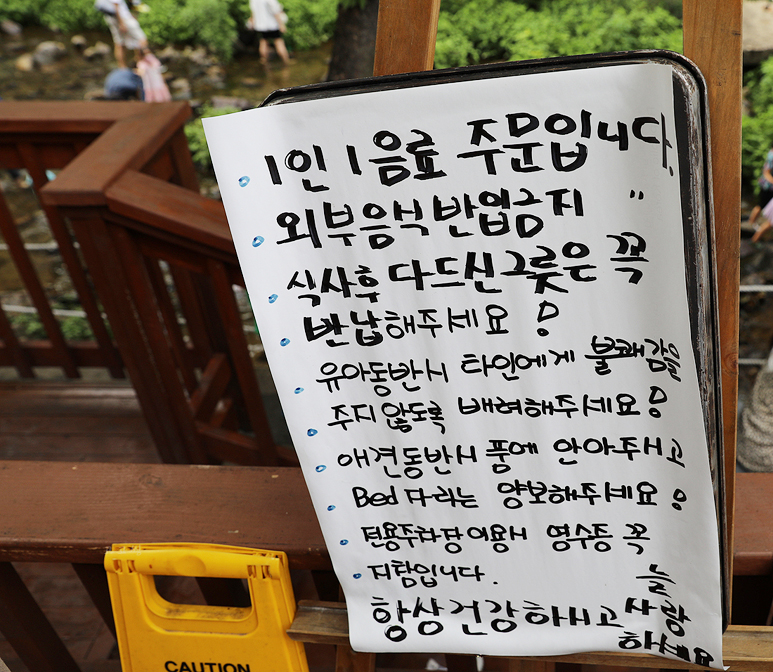 1인 1음료 주문입니다.
외부음식 반입금지 "
식사후 다드신 그릇은 꼭
반납해주세요!
유아동반시 타인에게 불쾌감을
주지 않도록 배려해주세요!
애견동반시 품에 안아주시고
Bed 다리는 양보해주세요!
전용주차장이용시 영수증 꼭
지참입니다.
늘
항상 건강하시고 사랑
하세요
CAUTION